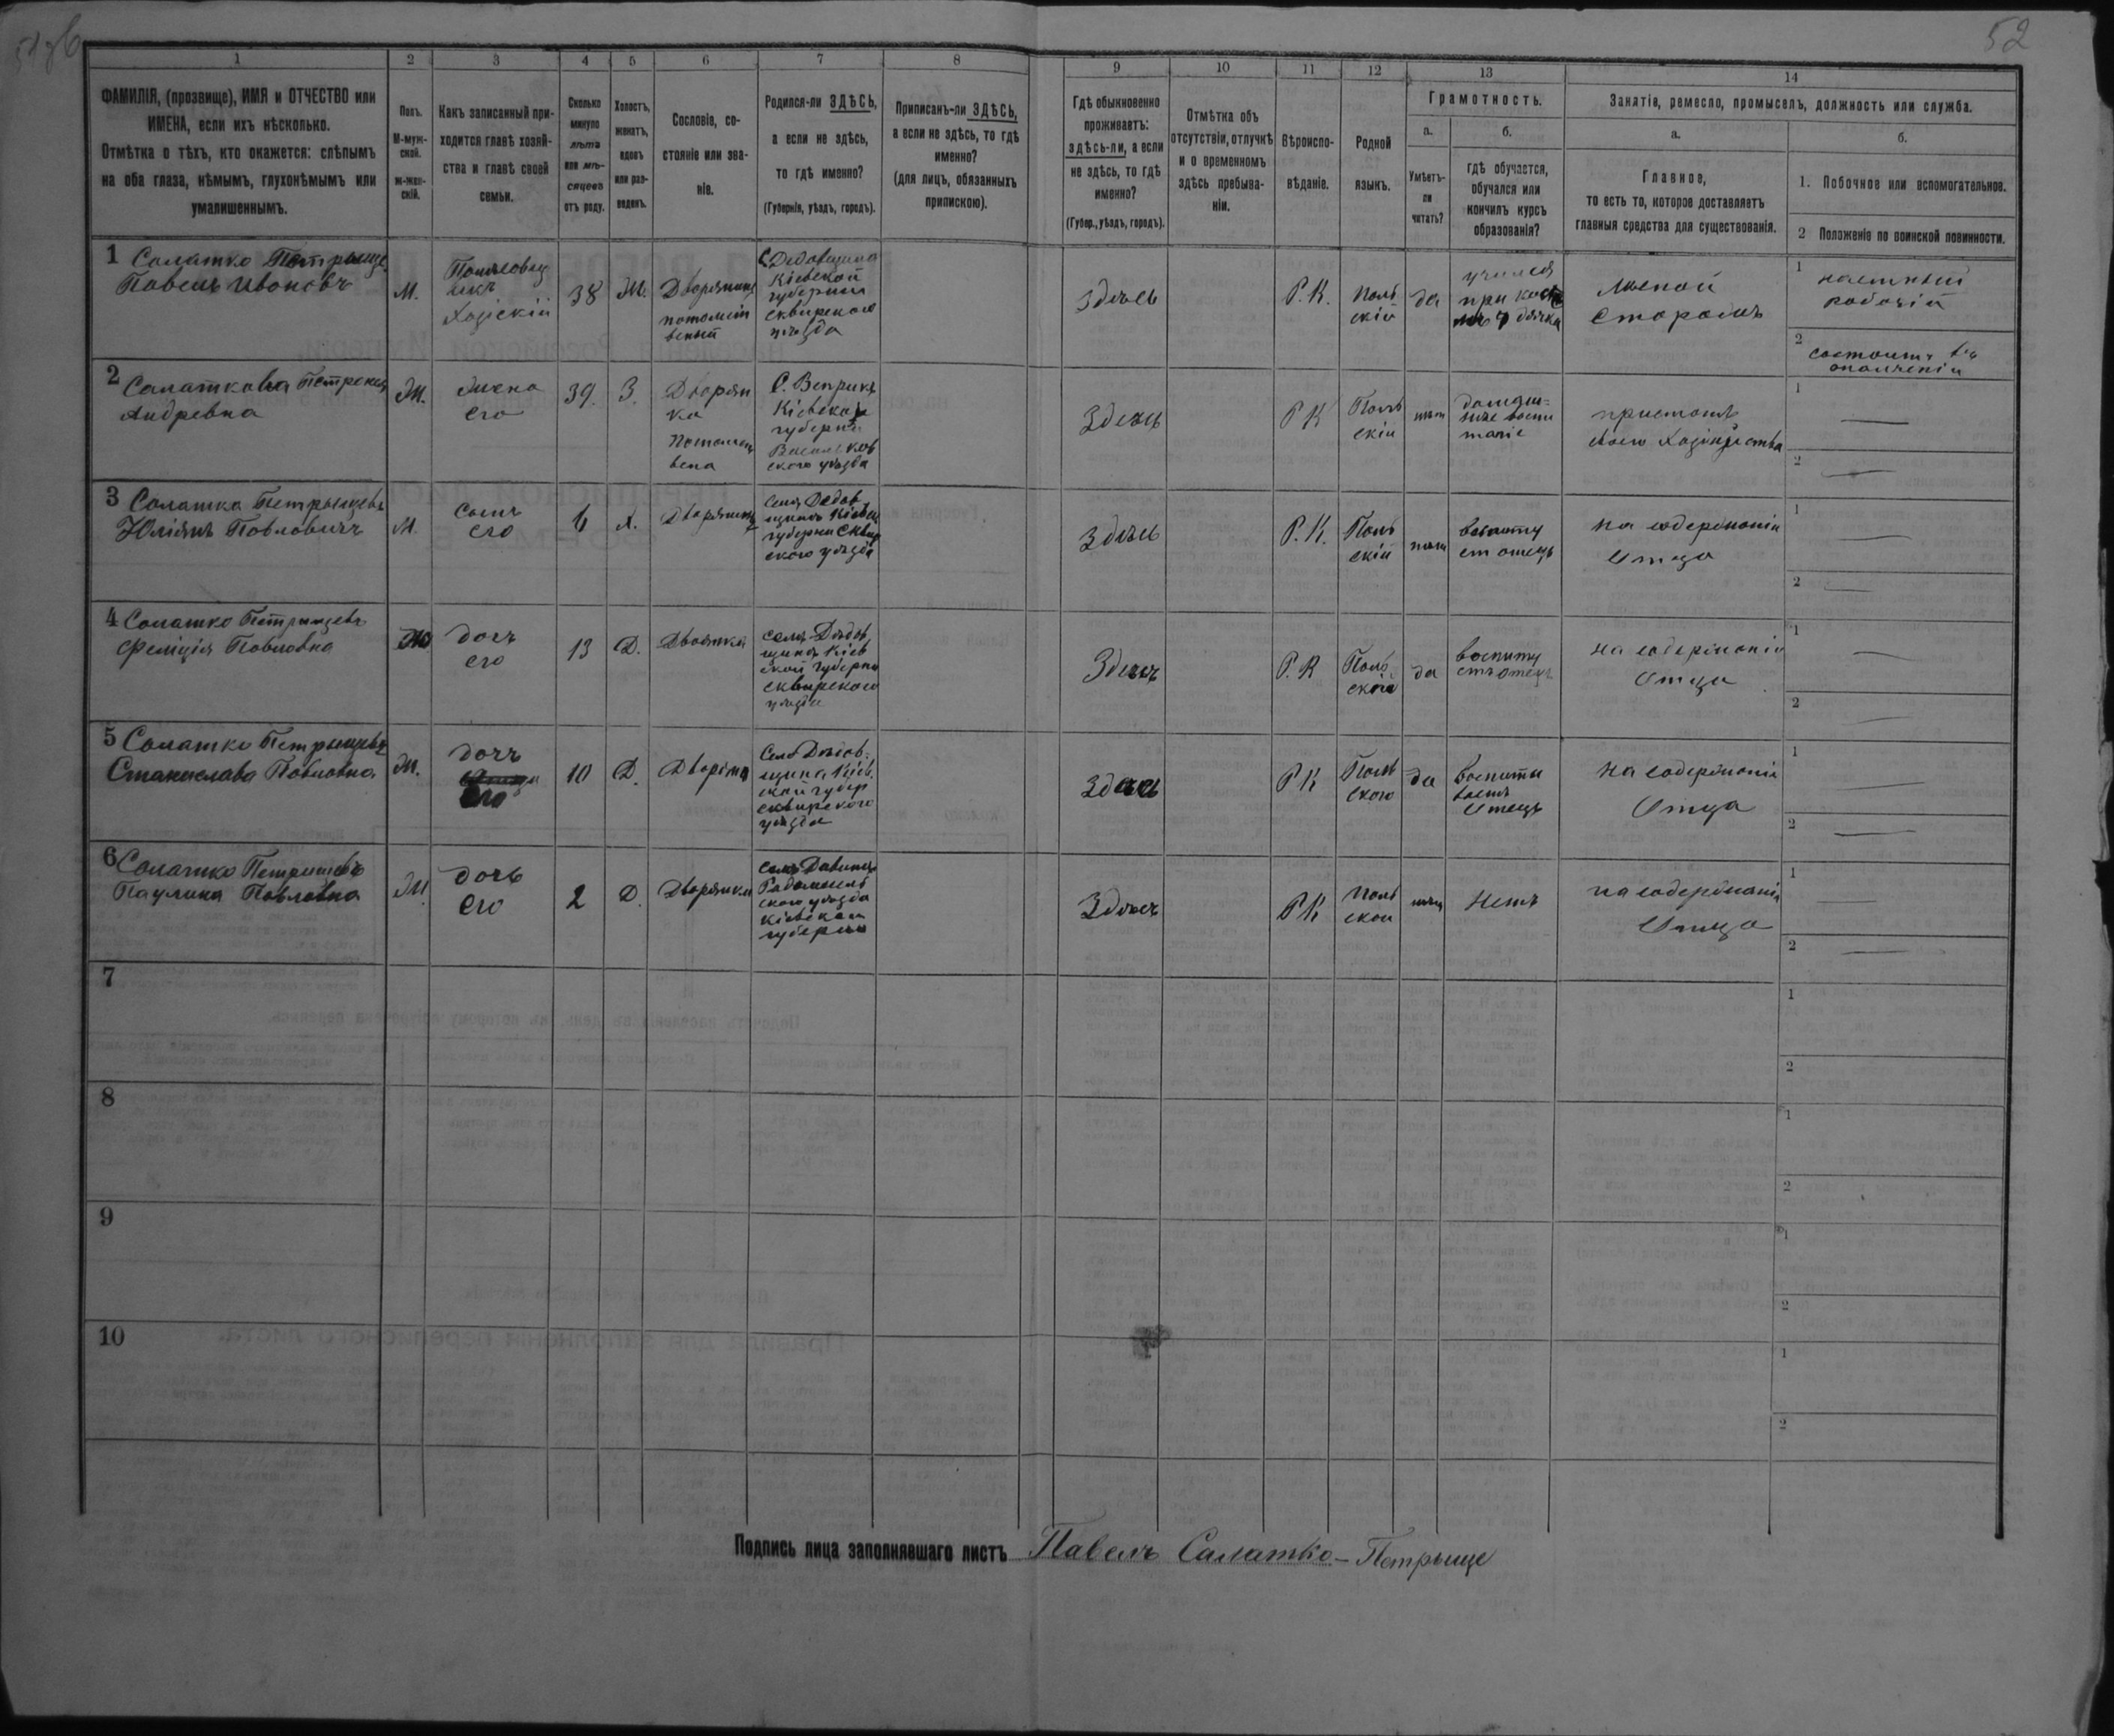 52
1
2
3
4
5
6
7
8
9
10
11
12
13
14
ФАМИЛІЯ, (прозвище), ИМЯ и ОТЧЕСТВО или
ИМЕНА, если ихъ нѣсколько.
Отмѣтка о тѣхъ, кто окажется: слѣпымъ
на оба глаза, нѣмымъ, глухонѣмымъ или
умалишеннымъ.
Полъ.
М-муж-
ской.
ж-жен-
скій.
Какъ записанный при-
ходится главѣ хозяй-
ства и главѣ своей
семьи.
Сколько
минуло
лѣтъ
или мѣ-
сяцевъ
отъ роду.
Холостъ,
женатъ,
вдовъ
или раз-
веденъ.
Сословіе, со-
стояніе или зва-
ніе.
Родился-ли ЗДѢСЬ,
а если не здѣсь,
то гдѣ именно?
(Губернія, уѣздъ, городъ).
Приписанъ-ли ЗДѢСЬ,
а если не здѣсь, то гдѣ
именно?
(для лицъ, обязанныхъ
припискою).
Гдѣ обыкновенно
проживаетъ:
здѣсь-ли, а если
не здѣсь, то гдѣ
именно?
(Губер., уѣздъ, городъ).
Отмѣтка объ
отсутствіи, отлучкѣ
и о временномъ
здѣсь пребыва-
ніи.
Вѣроиспо-
вѣданіе.
Родной
языкъ.
Грамотность.
а.
Умѣетъ-
ли
читать?
б.
гдѣ обучается,
обучался или
кончилъ курсъ
образованія?
Занятіе, ремесло, промыселъ, должность или служба.
а.
Главное,
то есть то, которое доставляетъ
главныя средства для существованія.
б.
1. Побочное или вспомогательное.
2 Положеніе по воинской повинности.
1 Салатко Петрыще
Павелъ Ивановъ
М.
38
Ж.
Дворянинъ
потомст
венный
С. Дедовщина
Кіевской
губерніи
сквирского
уѣзда
Здѣсь
Р. К.
Поль
скій
да
учился
при косте
лѣ
Лѣсной
Сторожъ
1 наемный
рабочій
2 состоитъ въ
ополченіи
2 Салаткова Петронеля
Андревна
Ж.
Жена
его
39.
З.
Дворян
ка
Потомст
вена
С. Веприкъ
Кіевской
губерніи
Васильков
ского уѣзда
Здесь
Р К
Поль
скій
нѣтъ
домаш-
ніе воспи
таніе
своего хозяйства
1
2
3 Салатко Петрыщевъ
Юліянъ Павловичъ
М.
Сынъ
его
6
Х.
Дворянинъ
Село Дедов
щина Кіевск
губерни Сквир
ского уѣзда
Здѣсь
Р. К.
Поль
скій
нѣтъ
воспиту
ет отецъ
На содержаніи
Отца
1
2
4 Салатко Петрыщевъ
Фелиція Павловна
Ж
дочь
его
13
Д.
Село Дѣдов
щина Кіев
ской губерни
сквирского
уѣзда
Здесь
Р. К
Поль
ского
да
воспиту
етъ отецъ
на содержаніи
Отца
1
2
5 Салатко Петрыщевъ
Станислава Павловна
Ж.
дочь
его
10
Д.
Село Дѣдов-
щина Кіев.
ской губер
сквирского
уѣзда
Здесь
Р К
Поль
ского
да
Отецъ
На содержаніи
Отца
1
2
6 Салатко Петрищевъ
Паулина Павловна
Ж
дочь
его
2
Д.
Дворянка
Радомысль
ского уѣзда
Кіевской
губерніи
Здѣсь
Р К
Поль
ской
нѣтъ
Нетъ
на содержаніи
Отца
1
2
7
1
2
8
1
2
9
1
2
10
1
2
Подпись лица заполнявшаго листъ Павелъ Салатко-Петрыще